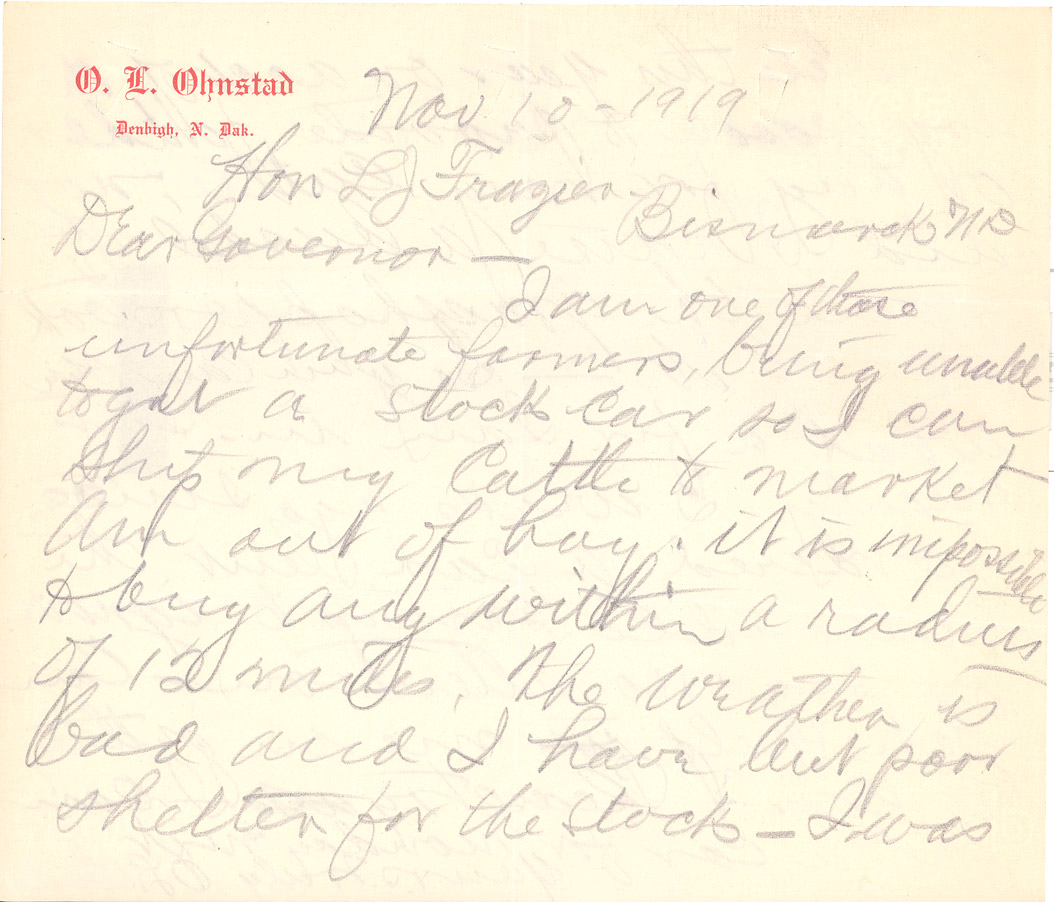 O. L. Ohnstad
Denbigh, N. Dak.
Nov. 10-1919
Hon L J Frazier
Bismarck ND
Dear Governor —
I am one of those
unfortunate farmers, being unable
to get a stock car so I can
ship my Cattle to market
Am out of hay. it is impossible
to buy any within a radius
of 12 miles. The weather is
bad and I have but poor
shelter for the stock — I was